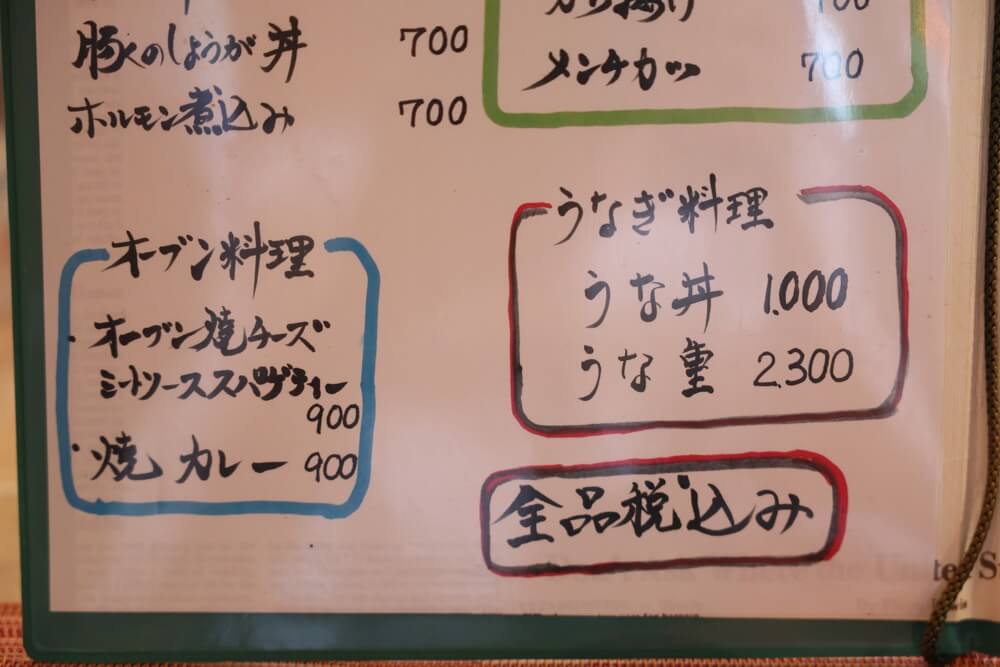 豚のしょうが丼 700
ホルモン煮込み 700
メンチカツ 700
オーブン料理
・オーブン焼チーズ
ミートソーススパゲティー
900
・焼カレー 900
うなぎ料理
うな丼 1.000
うな重 2.300
全品税込み